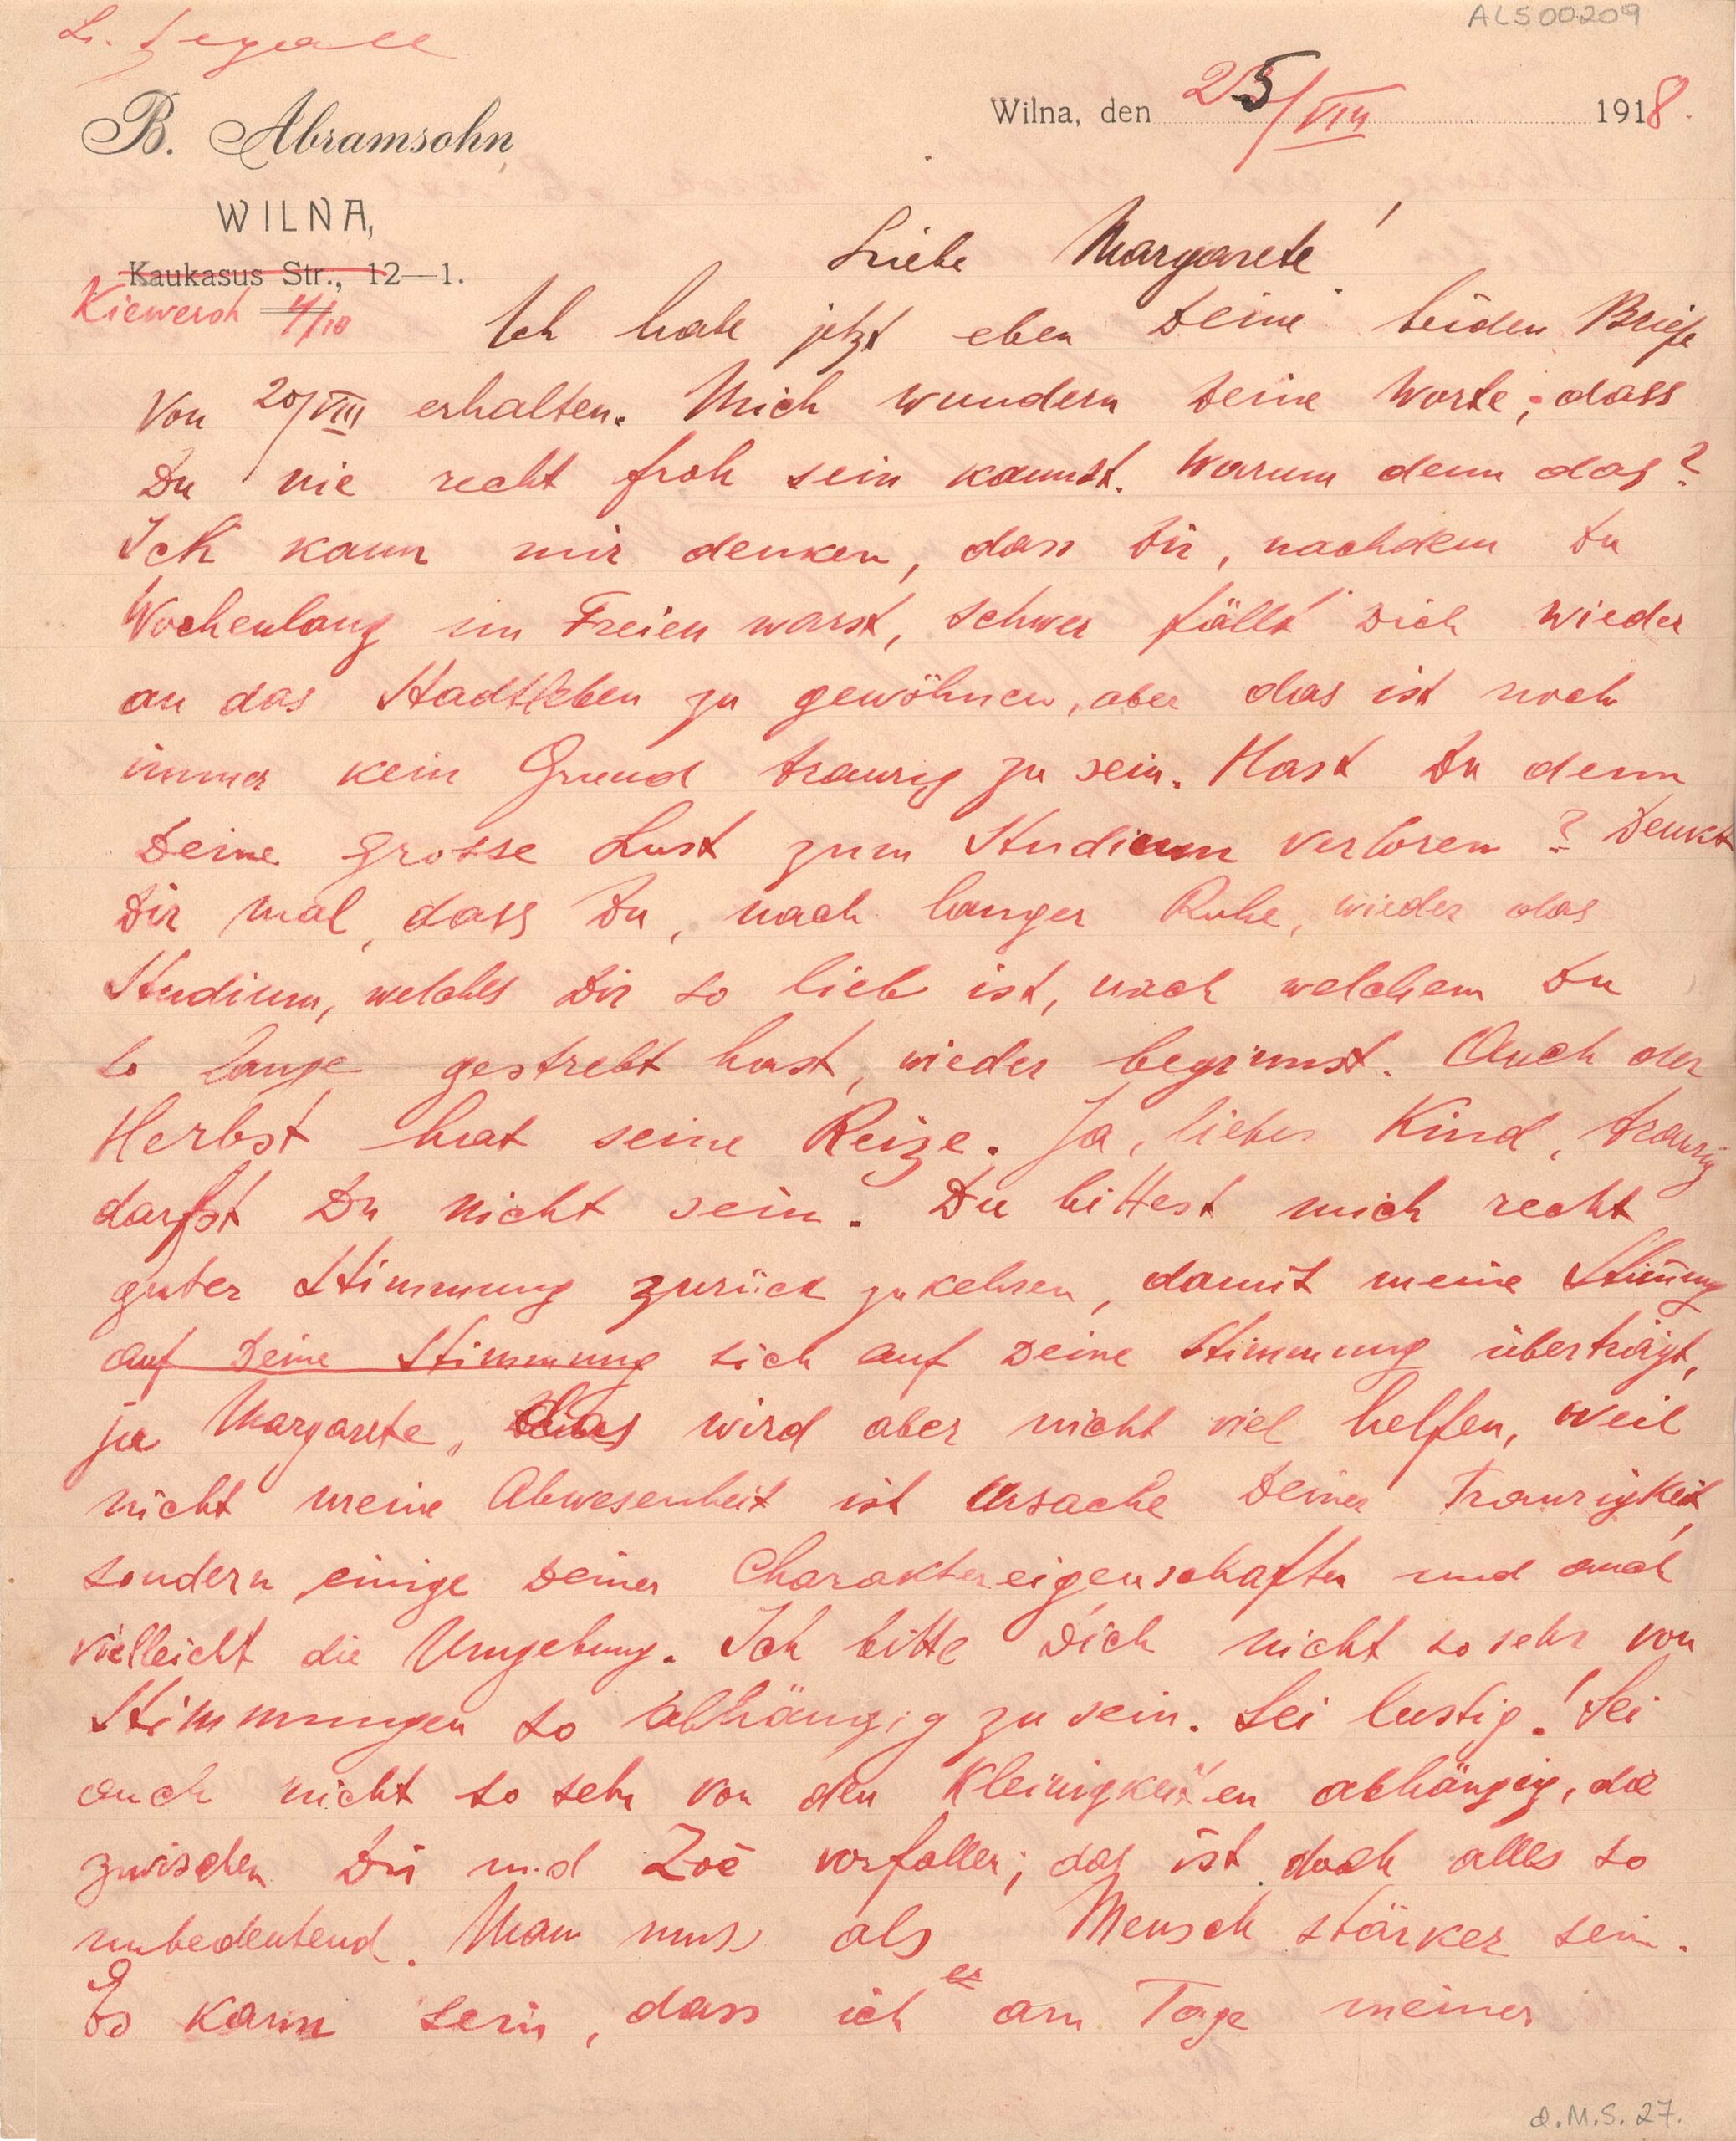 L. Segall
ALS00209
B. Abramsohn,
Wilna, den 25/VIII 1918.
WILNA,
Kaukasus Str., 12—1.
Kiewersh 4/10
Liebe Margarete!
Ich habe jetzt eben Deine beiden Briefe
von 20/VIII erhalten. Mich wundern Deine Worte, dass
Du nie recht froh sein kannst. Warum denn das?
Ich kann mir denken, dass Dir, nachdem Du
Wochenlang im Freien warst, schwer fällt Dich wieder
an das Stadtleben zu gewöhnen, aber das ist noch
immer kein Grund traurig zu sein. Hast Du denn
Deine grosse Lust zum Studium verloren? Denkt
Dir mal, dass Du, nach langer Ruhe, wieder das
Studium, welches Dir so lieb ist, nach welchem Du
so lange gestrebt hast, wieder beginnst. Auch der
Herbst hat seine Reize. Ja, liebes Kind, traurig
darfst Du nicht sein. Du bittest mich recht
guter Stimmung zurück zu kehren, damit meine Stimmung
auf Deine Stimmung sich auf Deine Stimmung überträgt,
ja Margarete, das wird aber nicht viel helfen, weil
nicht meine Abwesenheit ist Ursache Deiner Traurigkeit,
sondern einige Deiner Charaktereigenschaften und auch
vielleicht die Umgebung. Ich bitte Dich nicht so sehr von
Stimmungen so abhängig zu sein. Sei lustig! Sei
auch nicht so sehr von den Kleinigkeiten abhängig, die
zwischen Dir und Zoë vorfallen; das ist doch alles so
unbedeutend. Man muss als Mensch stärker sein.
Es kann sein, dass ich er am Tage meiner
d.M.S. 27.